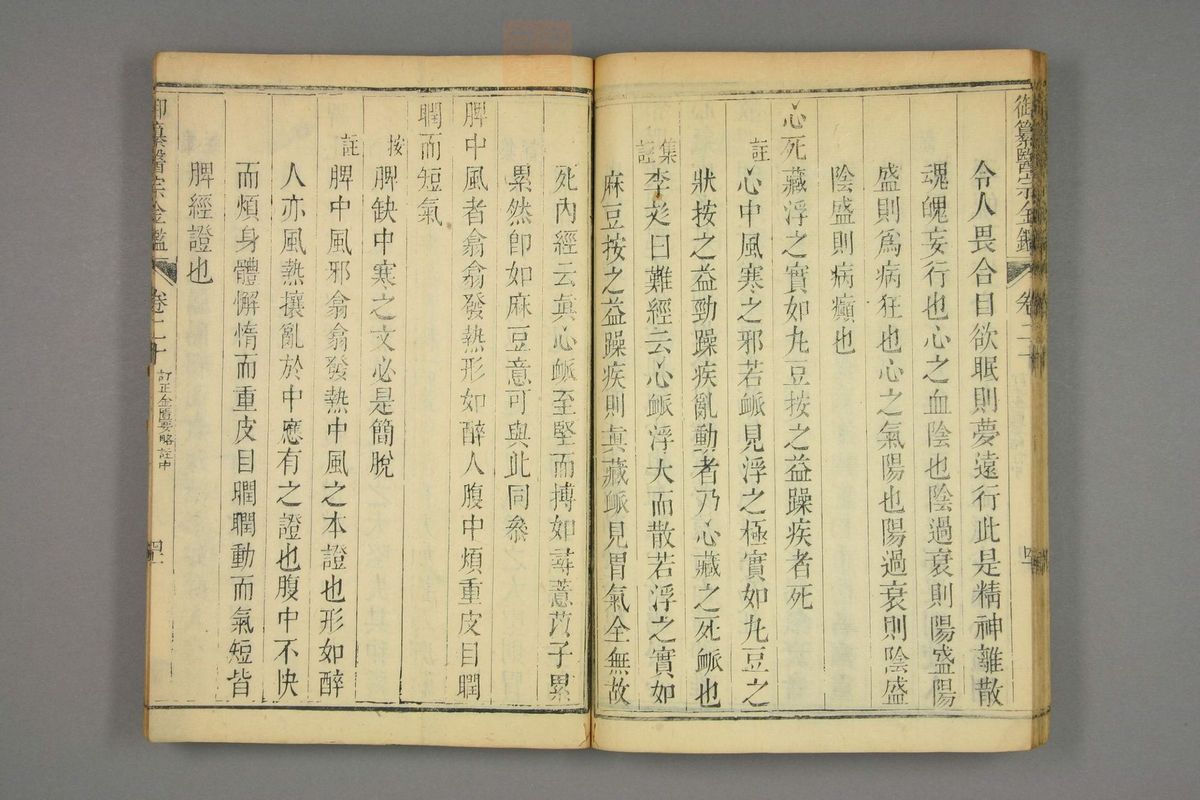 御纂醫宗金鑑 卷二十
令人畏合目欲眠則夢遠行此是精神離散
魂魄妄行也心之血陰也陰過衰則陽盛陽
盛則爲病狂也心之氣陽也陽過衰則陰盛
陰盛則病癲也
心死藏浮之實如丸豆按之益躁疾者死
註心中風寒之邪若脈見浮之極實如丸豆之
狀按之益勁躁疾亂動者乃心藏之死脈也
集註李彣曰難經云心脈浮大而散若浮之實如
麻豆按之益躁疾則眞藏脈見胃氣全無故
死內經云眞心脈至堅而搏如尋薏苡子累
累然卽如麻豆意可與此同參
脾中風者翕翕發熱形如醉人腹中煩重皮目瞤
瞤而短氣
按脾缺中寒之文必是簡脫
註脾中風邪翕翕發熱中風之本證也形如醉
人亦風熱攘亂於中應有之證也腹中不快
而煩身體懈惰而重皮目瞤瞤動而氣短皆
脾經證也
御纂醫宗金鑑 卷二十 訂正金匱要略註中